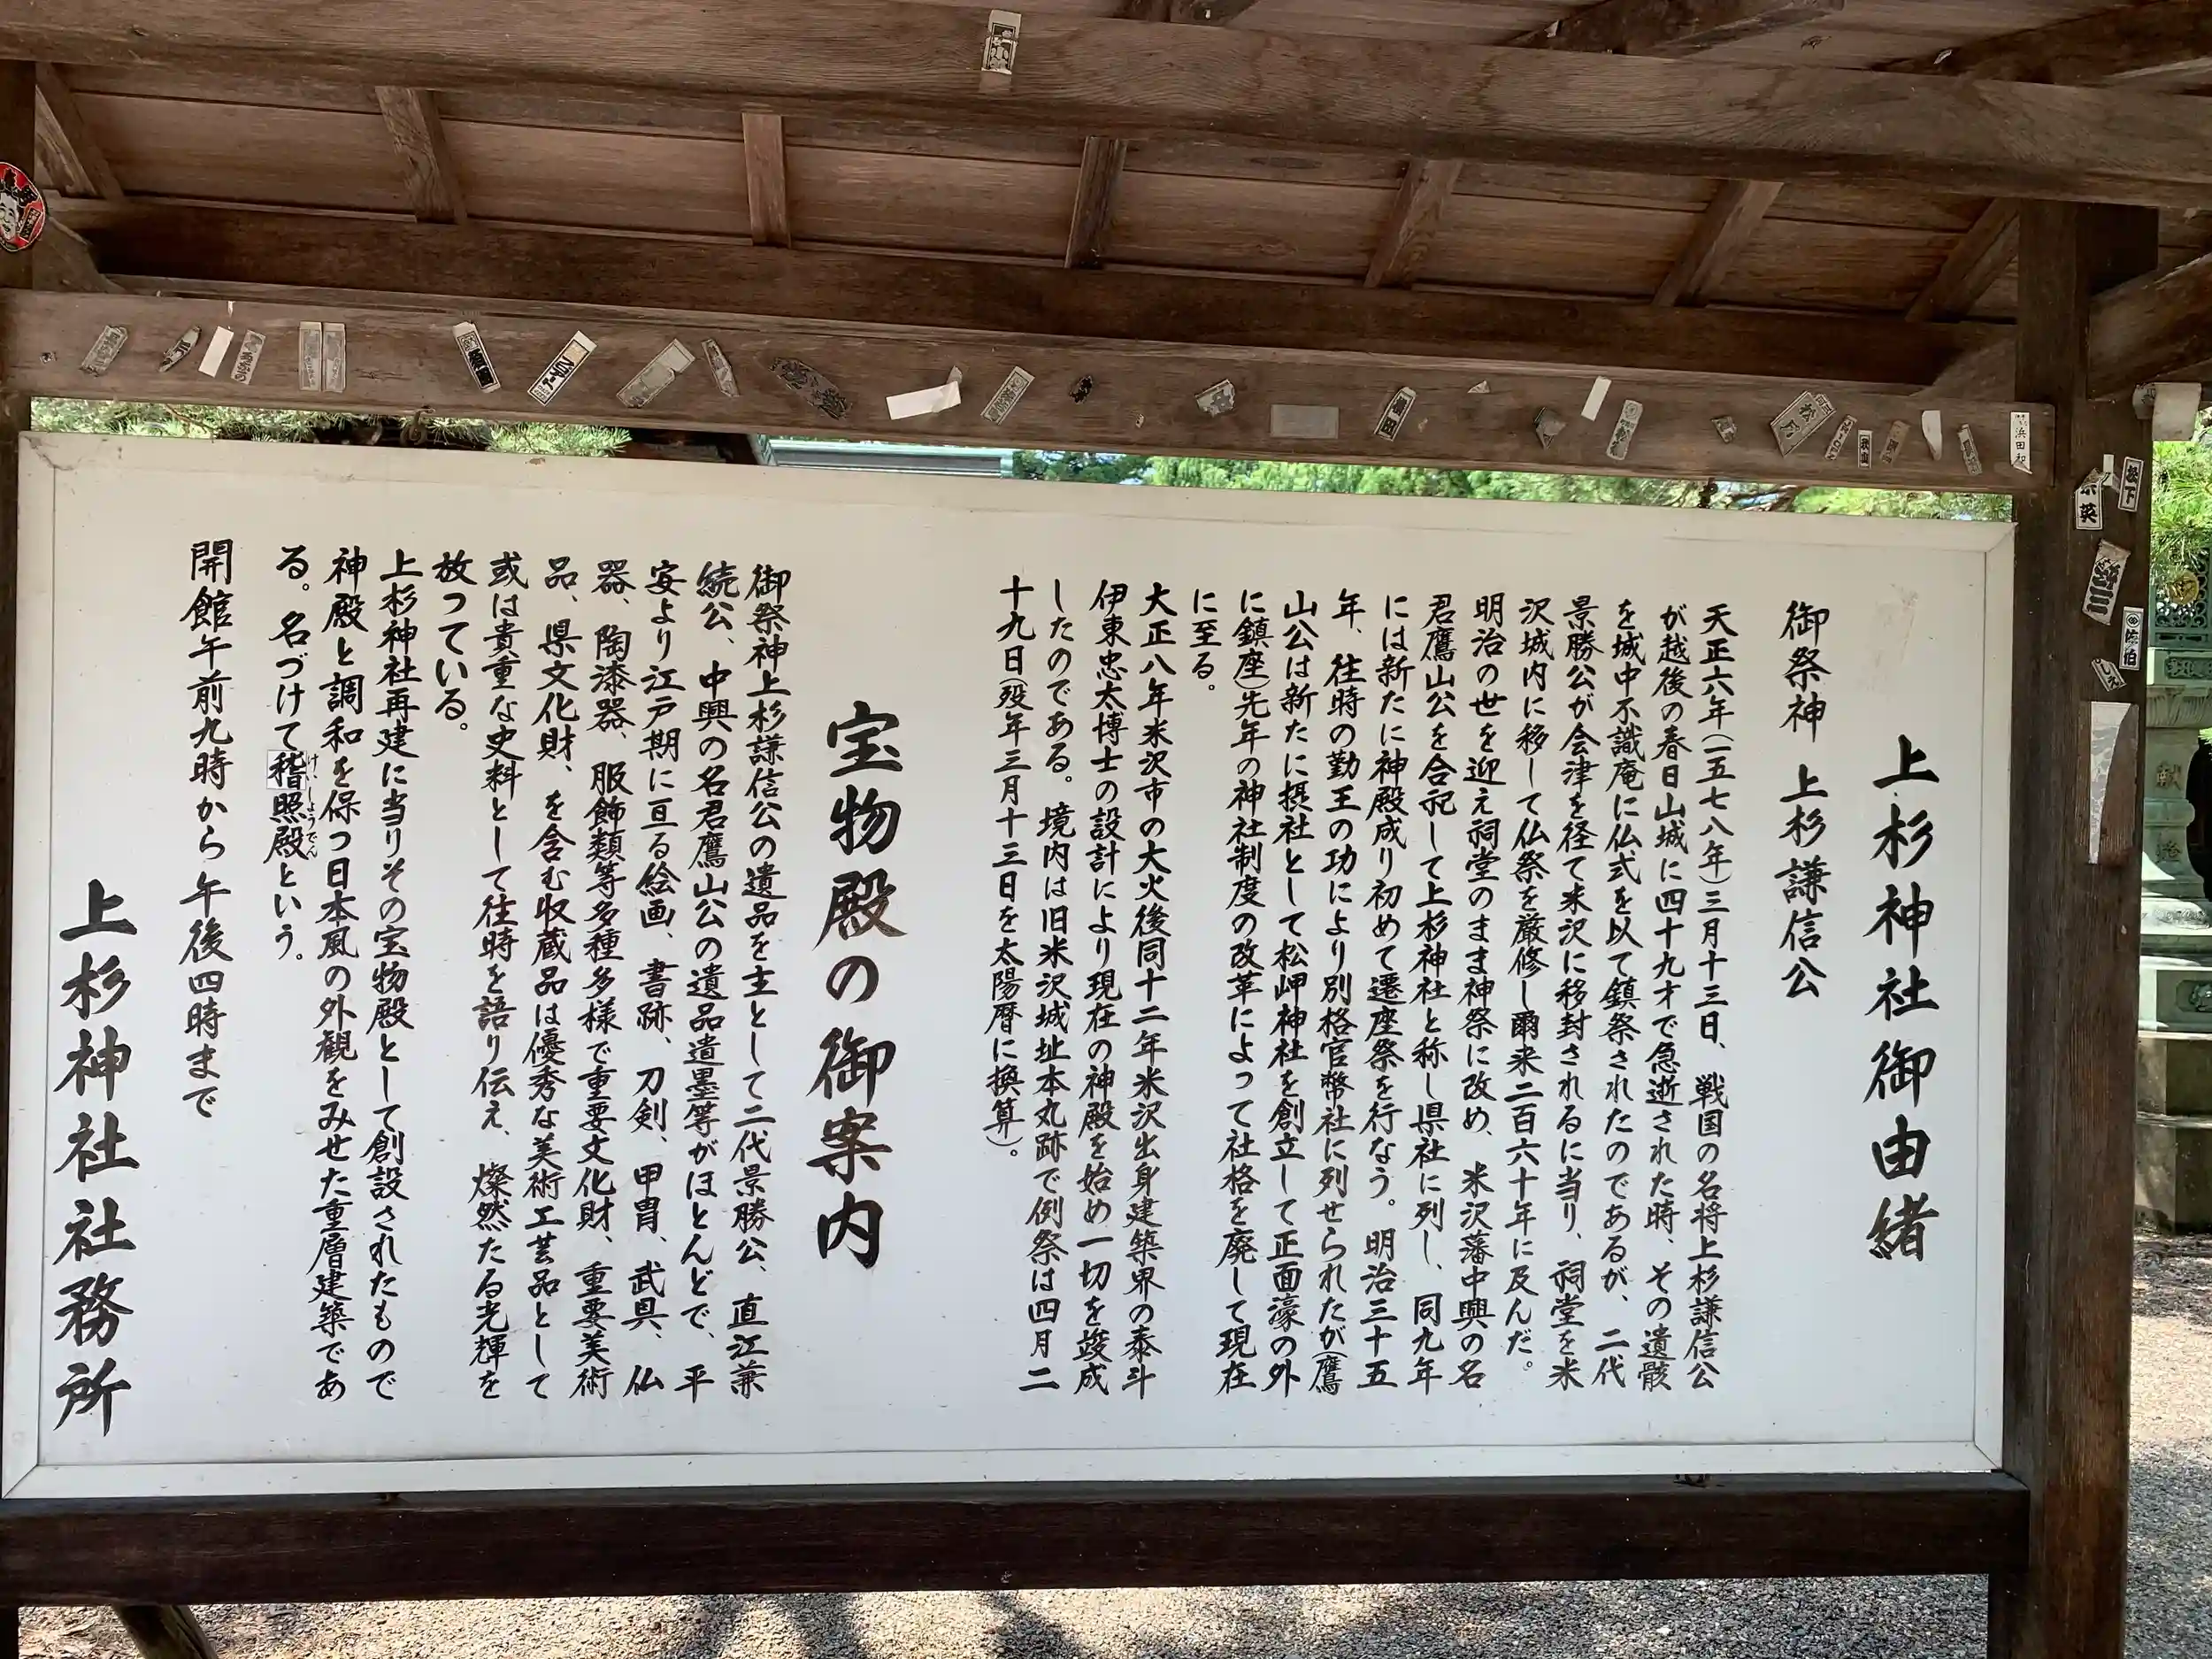 上杉神社御由緒
御祭神 上杉謙信公
天正六年(一五七八年)三月十三日、戦国の名将上杉謙信公
が越後の春日山城に四十九才で急逝された時、その遺骸
を城中不識庵に仏式を以て鎮祭されたのであるが、二代
景勝公が会津を径て米沢に移封されるに当り、祠堂を米
沢城内に移して仏祭を厳修し爾来二百六十年に及んだ。
明治の世を迎え祠堂のまま神祭に改め、米沢藩中興の名
君鷹山公を合祀して上杉神社と称し県社に列し、同九年
には新たに神殿成り初めて遷座祭を行なう。明治三十五
年、往時の勤王の功により別格官幣社に列せられたが(鷹
山公は新たに摂社として松岬神社を創立して正面濠の外
に鎮座)先年の神社制度の改革によって社格を廃して現在
に至る。
大正八年米沢市の大火後同十二年米沢出身建築界の泰斗
伊東忠太博士の設計により現在の神殿を始め一切を竣成
したのである。境内は旧米沢城址本丸跡で例祭は四月二
十九日(歿年三月十三日を太陽暦に換算)。
宝物殿の御案内
御祭神上杉謙信公の遺品を主として二代景勝公、直江兼
続公、中興の名君鷹山公の遺品遺墨等がほとんどで、平
安より江戸期に亘る絵画、書跡、刀剣、甲冑、武具、仏
器、陶漆器、服飾類等多種多様で重要文化財、重要美術
品、県文化財、を含む収蔵品は優秀な美術工芸品として
或は貴重な史料として往時を語り伝え、燦然たる光輝を
放っている。
上杉神社再建に当りその宝物殿として創設されたもので
神殿と調和を保つ日本風の外観をみせた重層建築であ
る。名づけて稽照殿という。
けいしょうでん
開館午前九時から午後四時まで
上杉神社社務所
松下
浜田和